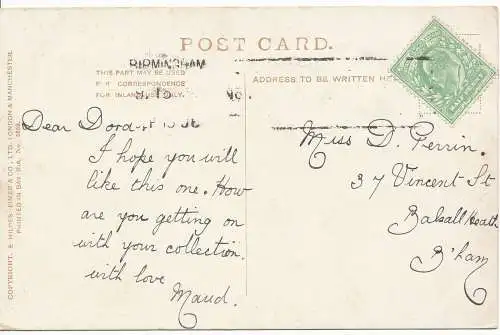 POST CARD.
BIRMINGHAM
THIS PART MAY BE USED
FOR CORRESPONDENCE
FOR INLAND ONLY.
ADDRESS TO BE WRITTEN HE
Dear Dora
I hope you will
like this one. How
are you getting on
with your collection.
with love
Maud.
Miss D. Perrin.
37 Vincent St
Balsall Heath
B'ham
COPYRIGHT. E. & CO., LTD. LONDON & MANCHESTER.
PRINTED IN No.